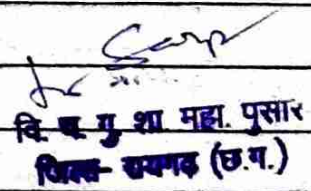 वि. ख. गु. शा. महा. पुसार
जिला- रायगढ़ (छ.ग.)